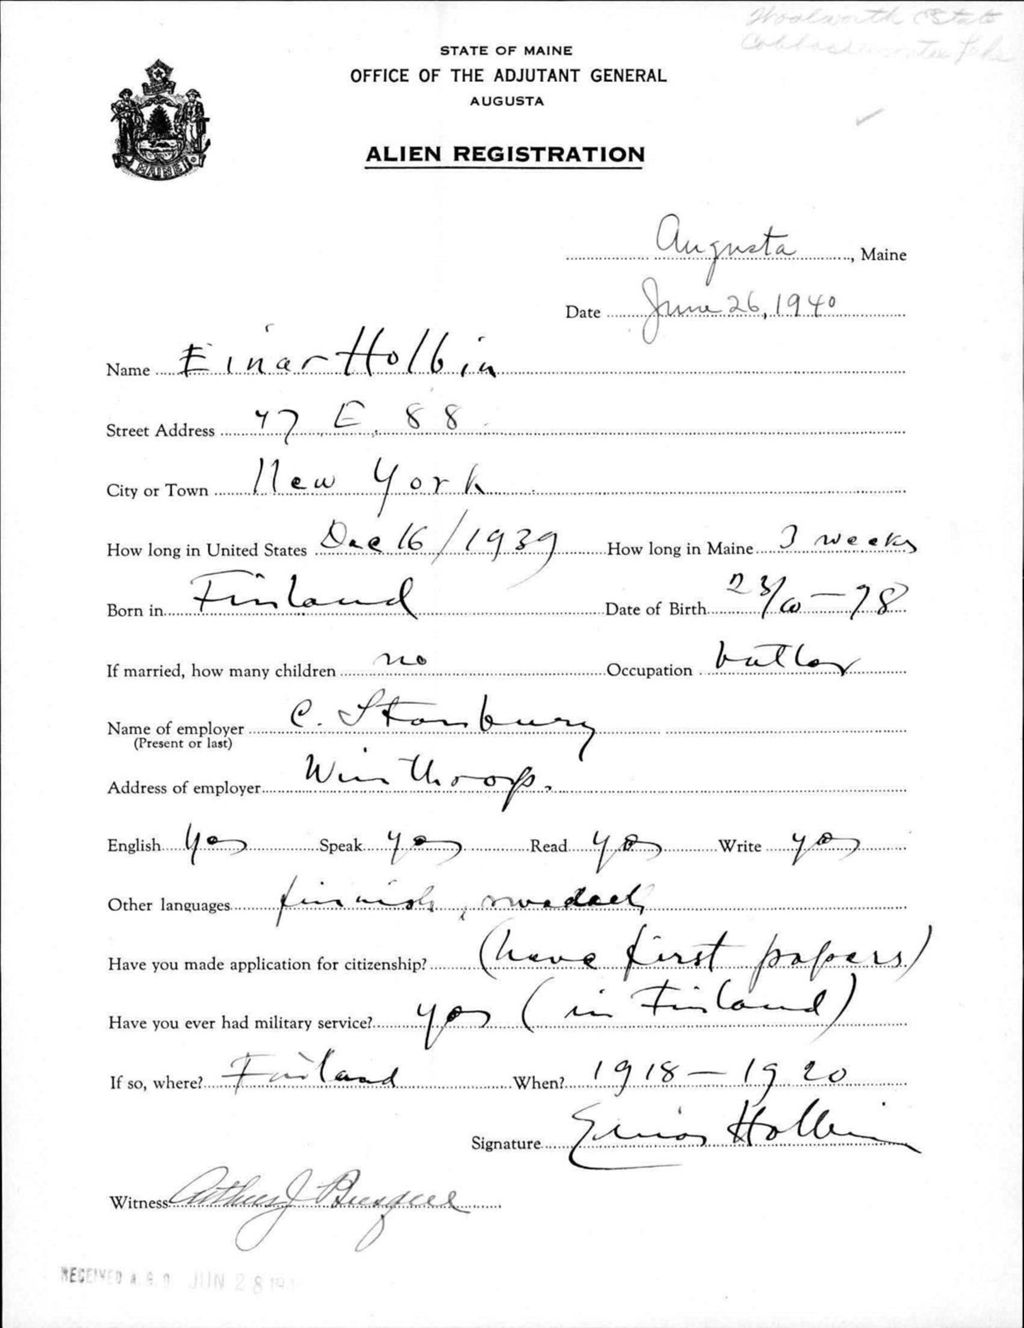 Woolworth Estate
STATE OF MAINE
OFFICE OF THE ADJUTANT GENERAL
AUGUSTA
ALIEN REGISTRATION
MAINE
Augusta, Maine
Date June 26, 1940
Name Einar Holbin
Street Address 47 E. 88
City or Town New York
How long in United States Dec 16/1939 How long in Maine 3 weeks
Born in Finland Date of Birth 23/10-98
If married, how many children no Occupation butler
Name of employer C. Stanbury
(Present or last)
Address of employer Winthrop.
English yes Speak yes Read yes Write yes
Other languages finnish, swedish
Have you made application for citizenship? (have first papers)
Have you ever had military service? yes (in Finland)
If so, where? Finland When? 1918-1920
Signature Einar Holbin
Witness Arthur J
RECEIVED A.G.O JUN 28 19